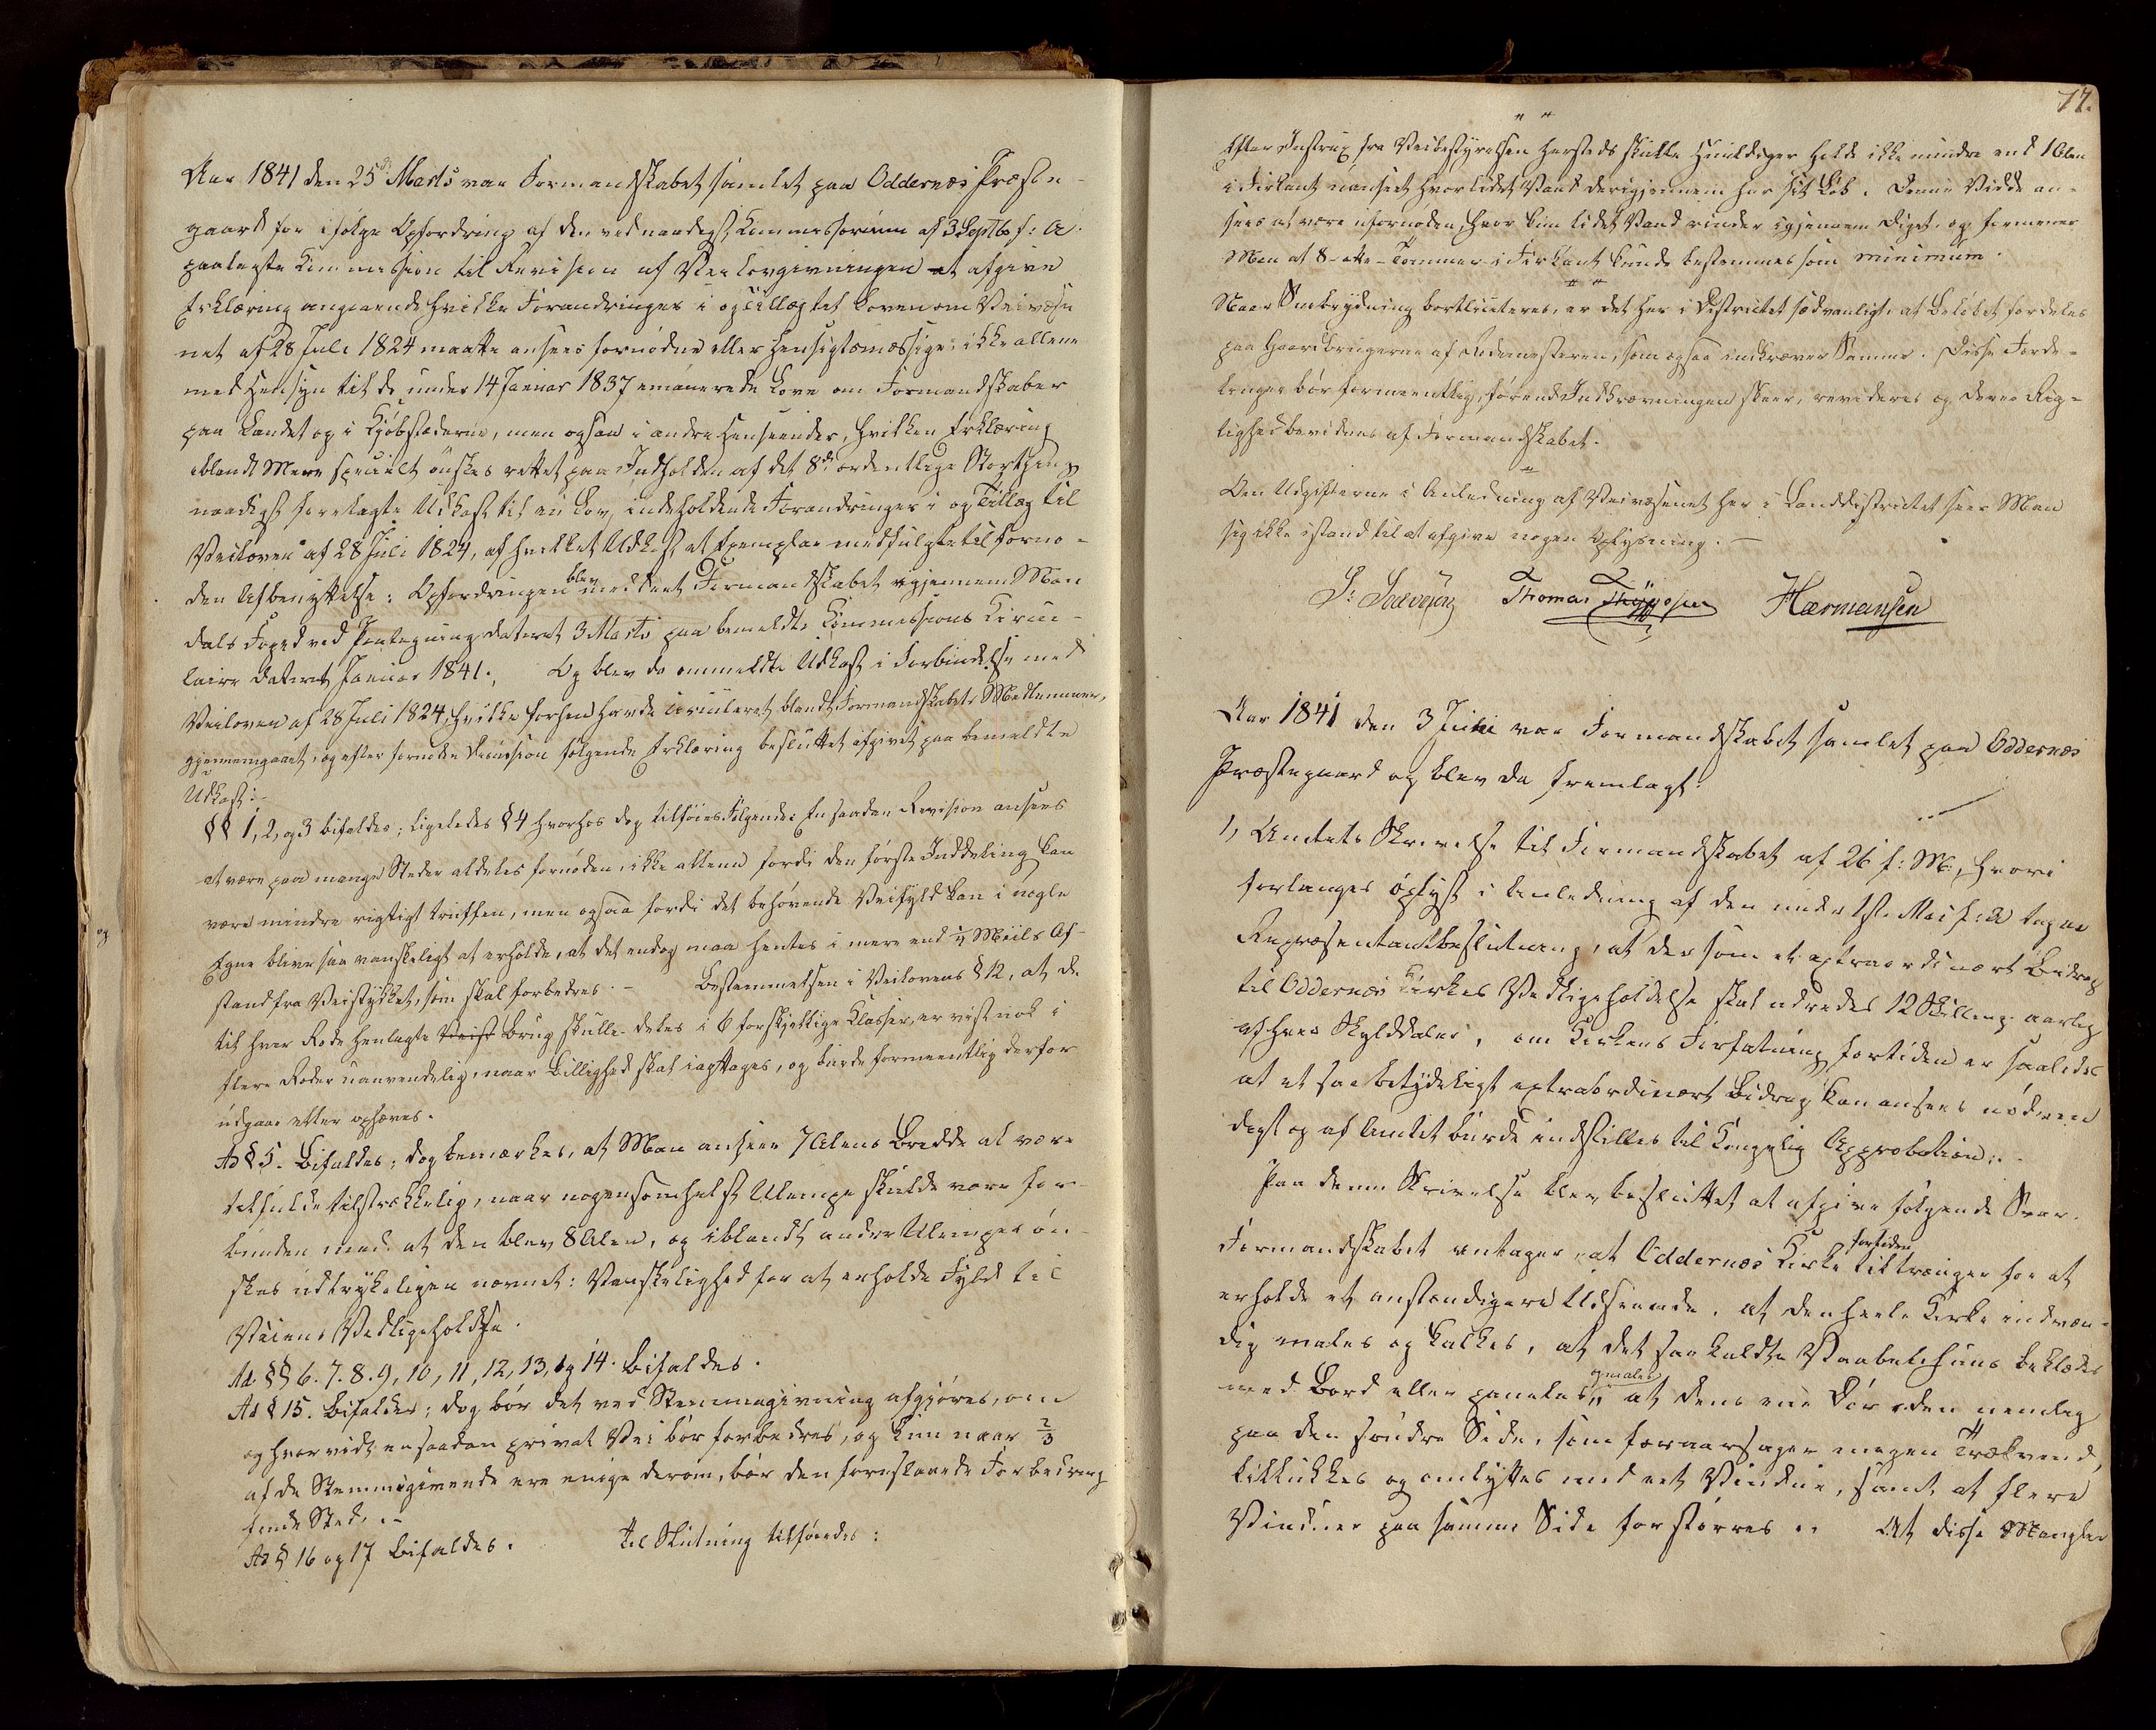 Aar 1841 den 25de Marts var Formandskabet samlet paa Oddernæs Præste-
gaard for ifølge Opfordring af den ved naadigst Commissorium af 3 Septb f: A.
paalagte Commission til Revision af Veilovgivningen at afgive
Erklæring angaaende hvilke Forandringer i og Tillæg til Loven om Veivæse-
net af 28 Juli 1824 maatte ansees fornødne eller hensigtsmæssige; ikke allene
med Hensyn til de under 14 Januar 1837 emanerede Love om Formandskaber
paa Landet og i Kjøbstæderne, men ogsaa i andre Henseender, hvilken Erklæring
iblandt Mere specielt ønskes rettet paa Indholden af det 8de ordentlige Storthing
naadigst forelagte Udkast til en Lov, indeholdende Forandringer i og Tillæg til
Veiloven af 28 Juli 1824, af hvilket Udkast et Exemplar medfulgte til forno-
den Afbenyttelse: Opfordringen blev meddeelt Formandskabet igjennem Man
dals Foged ved Paategning dateret 3 Marts paa bemeldte Commissions Circu-
laire dateret Januar 1841., Og blev da ommeldte Udkast i Forbindelse med
Veiloven af 28 Juli 1824, hvilke forhen havde circuleret blandt Formandskabets Medlemmer,
gjennemgaaet, og efter foregaaende Discussion følgende Erklæring besluttet afgivet paa bemeldte
Udkast:-
§§ 1, 2, og 3 bifaldes; ligeledes § 4 hvorhos dog tilføies Følgende: En saadan Revision ansees
at være paa mange Steder aldeles fornøden, ikke allene fordi den første Inddeling kan
være mindre rigtigt truffen, men ogsaa fordi det behøvende Veifyld kan i nogle
Egne blive saa vanskeligt at erholde, at det endog maa hentes i mere end ¼ Miils Af-
stand fra Veistykket, som skal forbedres. - Bestemmelsen i Veilovens § 12, at de
til hver Rode henlagte Brug skulle deles i 6 forskjellige Klasser, er vist nok i
flere Roder uanvendelig, naar Billighed skal iagttages, og burde formeentlig derfor
udgaae eller ophæves.
Ad § 5. Bifaldes; dog bemærkes, at Man anseer 7 Alens Bredde at være
tilfulde tilstrækkelig, naar nogensomhelst Ulempe skulde være for-
bunden med at den blev 8 Alen, og iblandt andre Ulemper øn-
skes udtrykeligen nævnet: Vanskelighed for at erholde Fyld til
Veiens Vedligeholdelse.
Ad §§ 6. 7. 8. 9, 10, 11, 12, 13, og 14. Bifaldes.
Ad § 15. Bifaldes; dog bør det ved Stemmegivning afgjøres, om
og hvorvidt en saadan privat Vei bør forbedres, og kun naar ⅔
af de Stemmegivende ere enige derom, bør den foreslaaede Forbedring
finde Sted. -
Ad § 16 og 17 Bifaldes. Til Slutning tilføiedes:
77.
" "
Efter Instrux fra Veibestyrelsen hersteds skulle Huuldiger holde ikke mindre end 1 Alen
i Firkant uanseet hvor lidet Vand derigjennem har sit Løb. Denne Vidde an-
sees at være ufornøden, hvor kun lidet Vand rinder igjennem Diget, og formener
Man at 8 - otte - Tommer i Firkant kunde bestemmes som minimum.
" "
Naar Snebrydning bortliciteres, er det her i Districtet sædvanligt, at Beløbet fordeles
paa Gaardbrugerne af Rodemesteren, som ogsaa indkræver Samme. Disse Forde-
linger bør formeentlig, førend Indkrævningen skeer, revideres og deres Rig-
tighed bevidnes af Formandskabet.
"
Om Udgifterne i Anledning af Veivæsenet her i Landdistrictet seer Man
sig ikke istand til at afgive nogen Oplysning. -
Thomas Hærmansen
Aar 1841 den 3 Juni var Formandskabet samlet paa Oddernæs
Præstegaard og blev da fremlagt:
1, Amtets Skrivelse til Formandskabet af 26 f: M:, hvori
forlanges oplyst i Anledning af den under 1ste Mai f: A tagne
Repræsentantbeslutning, at der som et extraordinært Bidrag
til Oddernæs Kirkes Vedligeholdelse skal udredes 12 Skilling aarlig
af hver Skylddaler, om Kirkens Forfatning for tiden er saaledes
at et saa betydeligt extraordinært Bidrag kan ansees nødven
digt og af Amtet burde indstilles til Kongelig Approbation.
Paa denne Skrivelse blev besluttet at afgive følgende Svar.
Formandskabet antager, at Oddernæs Kirke fortiden tiltrænger for at
erholde et anstændigere Udseende, at den heele Kirke indven-
dig males og kalkes, at det saa kaldte Vaabenhuus beklædes
med Bord eller paneles, og males at dens ene Dør, den nemlig
paa den søndre Side, som foraarsager megen Trækvind,
tillukkes og ombyttes med eet Vindue, samt at flere
Vinduer paa samme Side forstørres. At disse Mangler